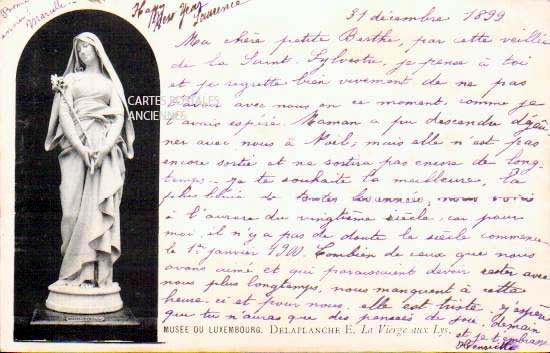 Happy
New Year
Laurence
31 décembre 1899
Ma chère petite Berthe, par cette veillée
de la Saint Sylvestre, je pense à toi
et je regrette bien vivement de ne pas
avec nous en ce moment, comme je
l'avais espéré. Maman a pu descendre déjeu
ner avec nous à Noël; mais elle n'est pas
encore sortie et ne sortira pas encore de long-
temps. Je te souhaite la meilleure, la
plus de toutes les années, nous voici
à l'aurore du vingtième siècle, car pour
moi il n'y a pas de doute le siècle commence
le 1er janvier 1900. Combien de ceux que nous
avons aimé et qui paraissaient devoir rester avec
nous plus longtemps, nous manquent à cette
heure, ici et pour nous, elle est triste, j'espère
que tu n'auras que des pensées de joie, demain
et je t'embrasse
Henriette
CARTES POSTALES
ANCIENNES
MUSÉE DU LUXEMBOURG. DELAPLANCHE E. La Vierge aux Lys.